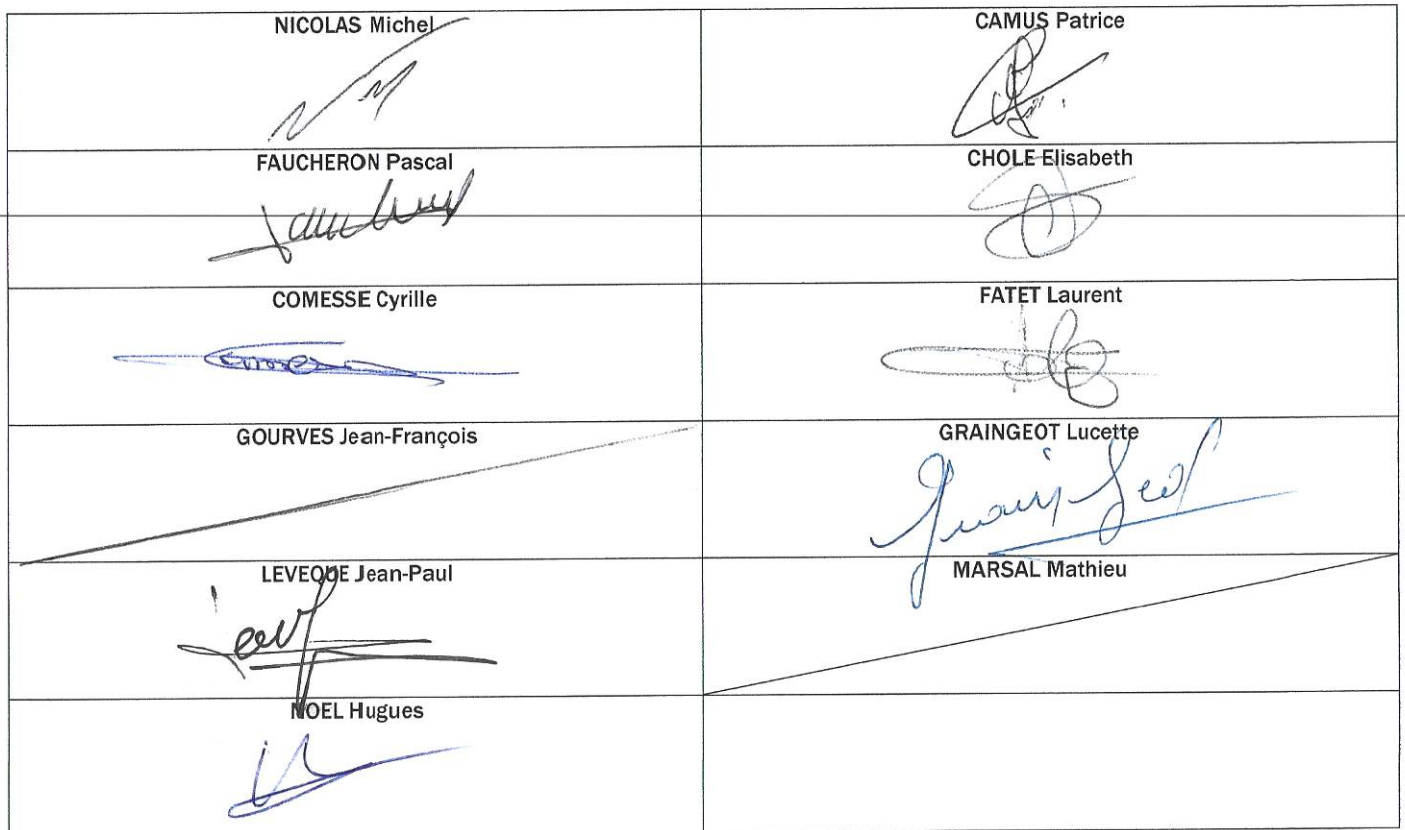 NICOLAS Michel
CAMUS Patrice
FAUCHERON Pascal
CHOLE Elisabeth
COMESSE Cyrille
FATET Laurent
GOURVES Jean-François
GRAINGEOT Lucette
LEVEQUE Jean-Paul
MARSAL Mathieu
NOEL Hugues